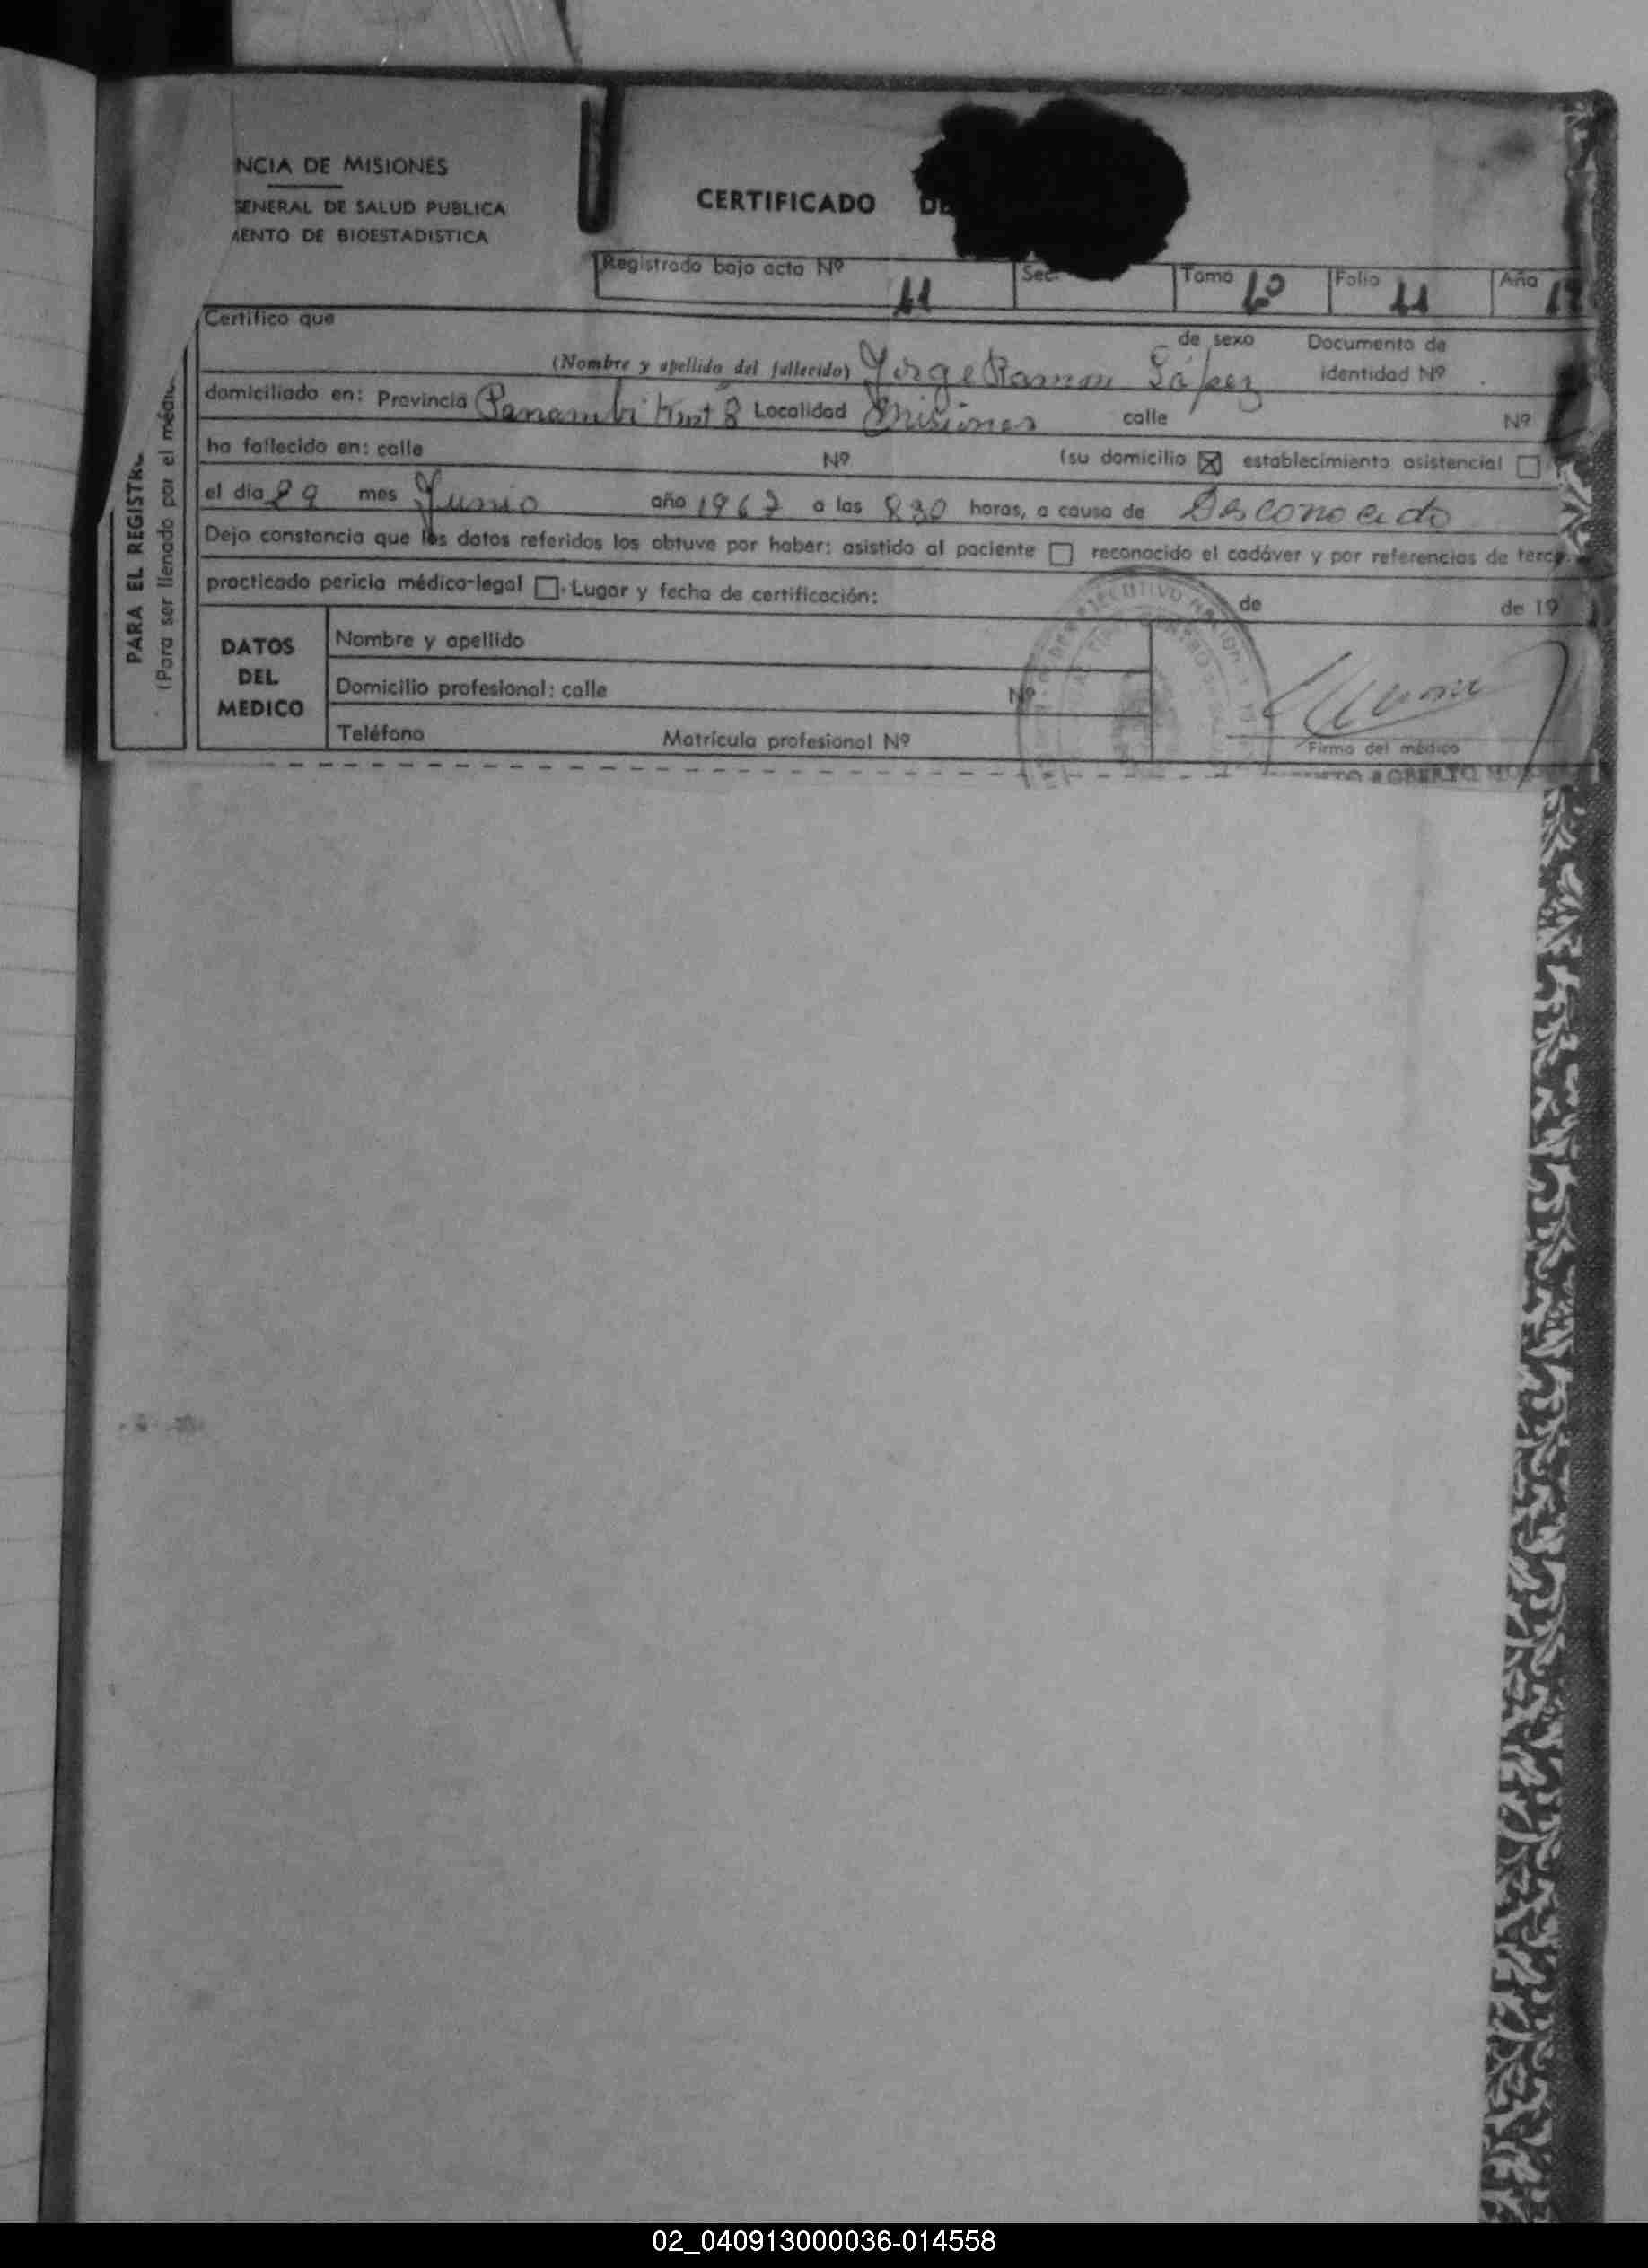 NCIA DE MISIONES
GENERAL DE SALUD PUBLICA
MENTO DE BIOESTADISTICA
CERTIFICADO DE
Registrado bajo acta Nº 11 Sec. Tomo 1º Folio 11 Año 19
PARA EL REGISTR
(Para ser llenado por el médic
Certifico que
(Nombre y apellido del fallecido) Jorge Ramon López de sexo Documento de identidad Nº
domiciliado en: Provincia Panambi Localidad Misiones calle Nº
ha fallecido en: calle Nº (su domicilio ☒ establecimiento asistencial ☐
el día 29 mes Junio año 1967 a las 830 horas, a causa de Desconocido
Dejo constancia que los datos referidos los obtuve por haber: asistido al paciente ☐ reconocido el cadáver y por referencias de terce
practicado pericia médico-legal ☐. Lugar y fecha de certificación: de de 19
DATOS DEL MEDICO
Nombre y apellido
Domicilio profesional: calle Nº
Teléfono Matrícula profesional Nº
Firma del médico
ROBERTO
02_040913000036-014558